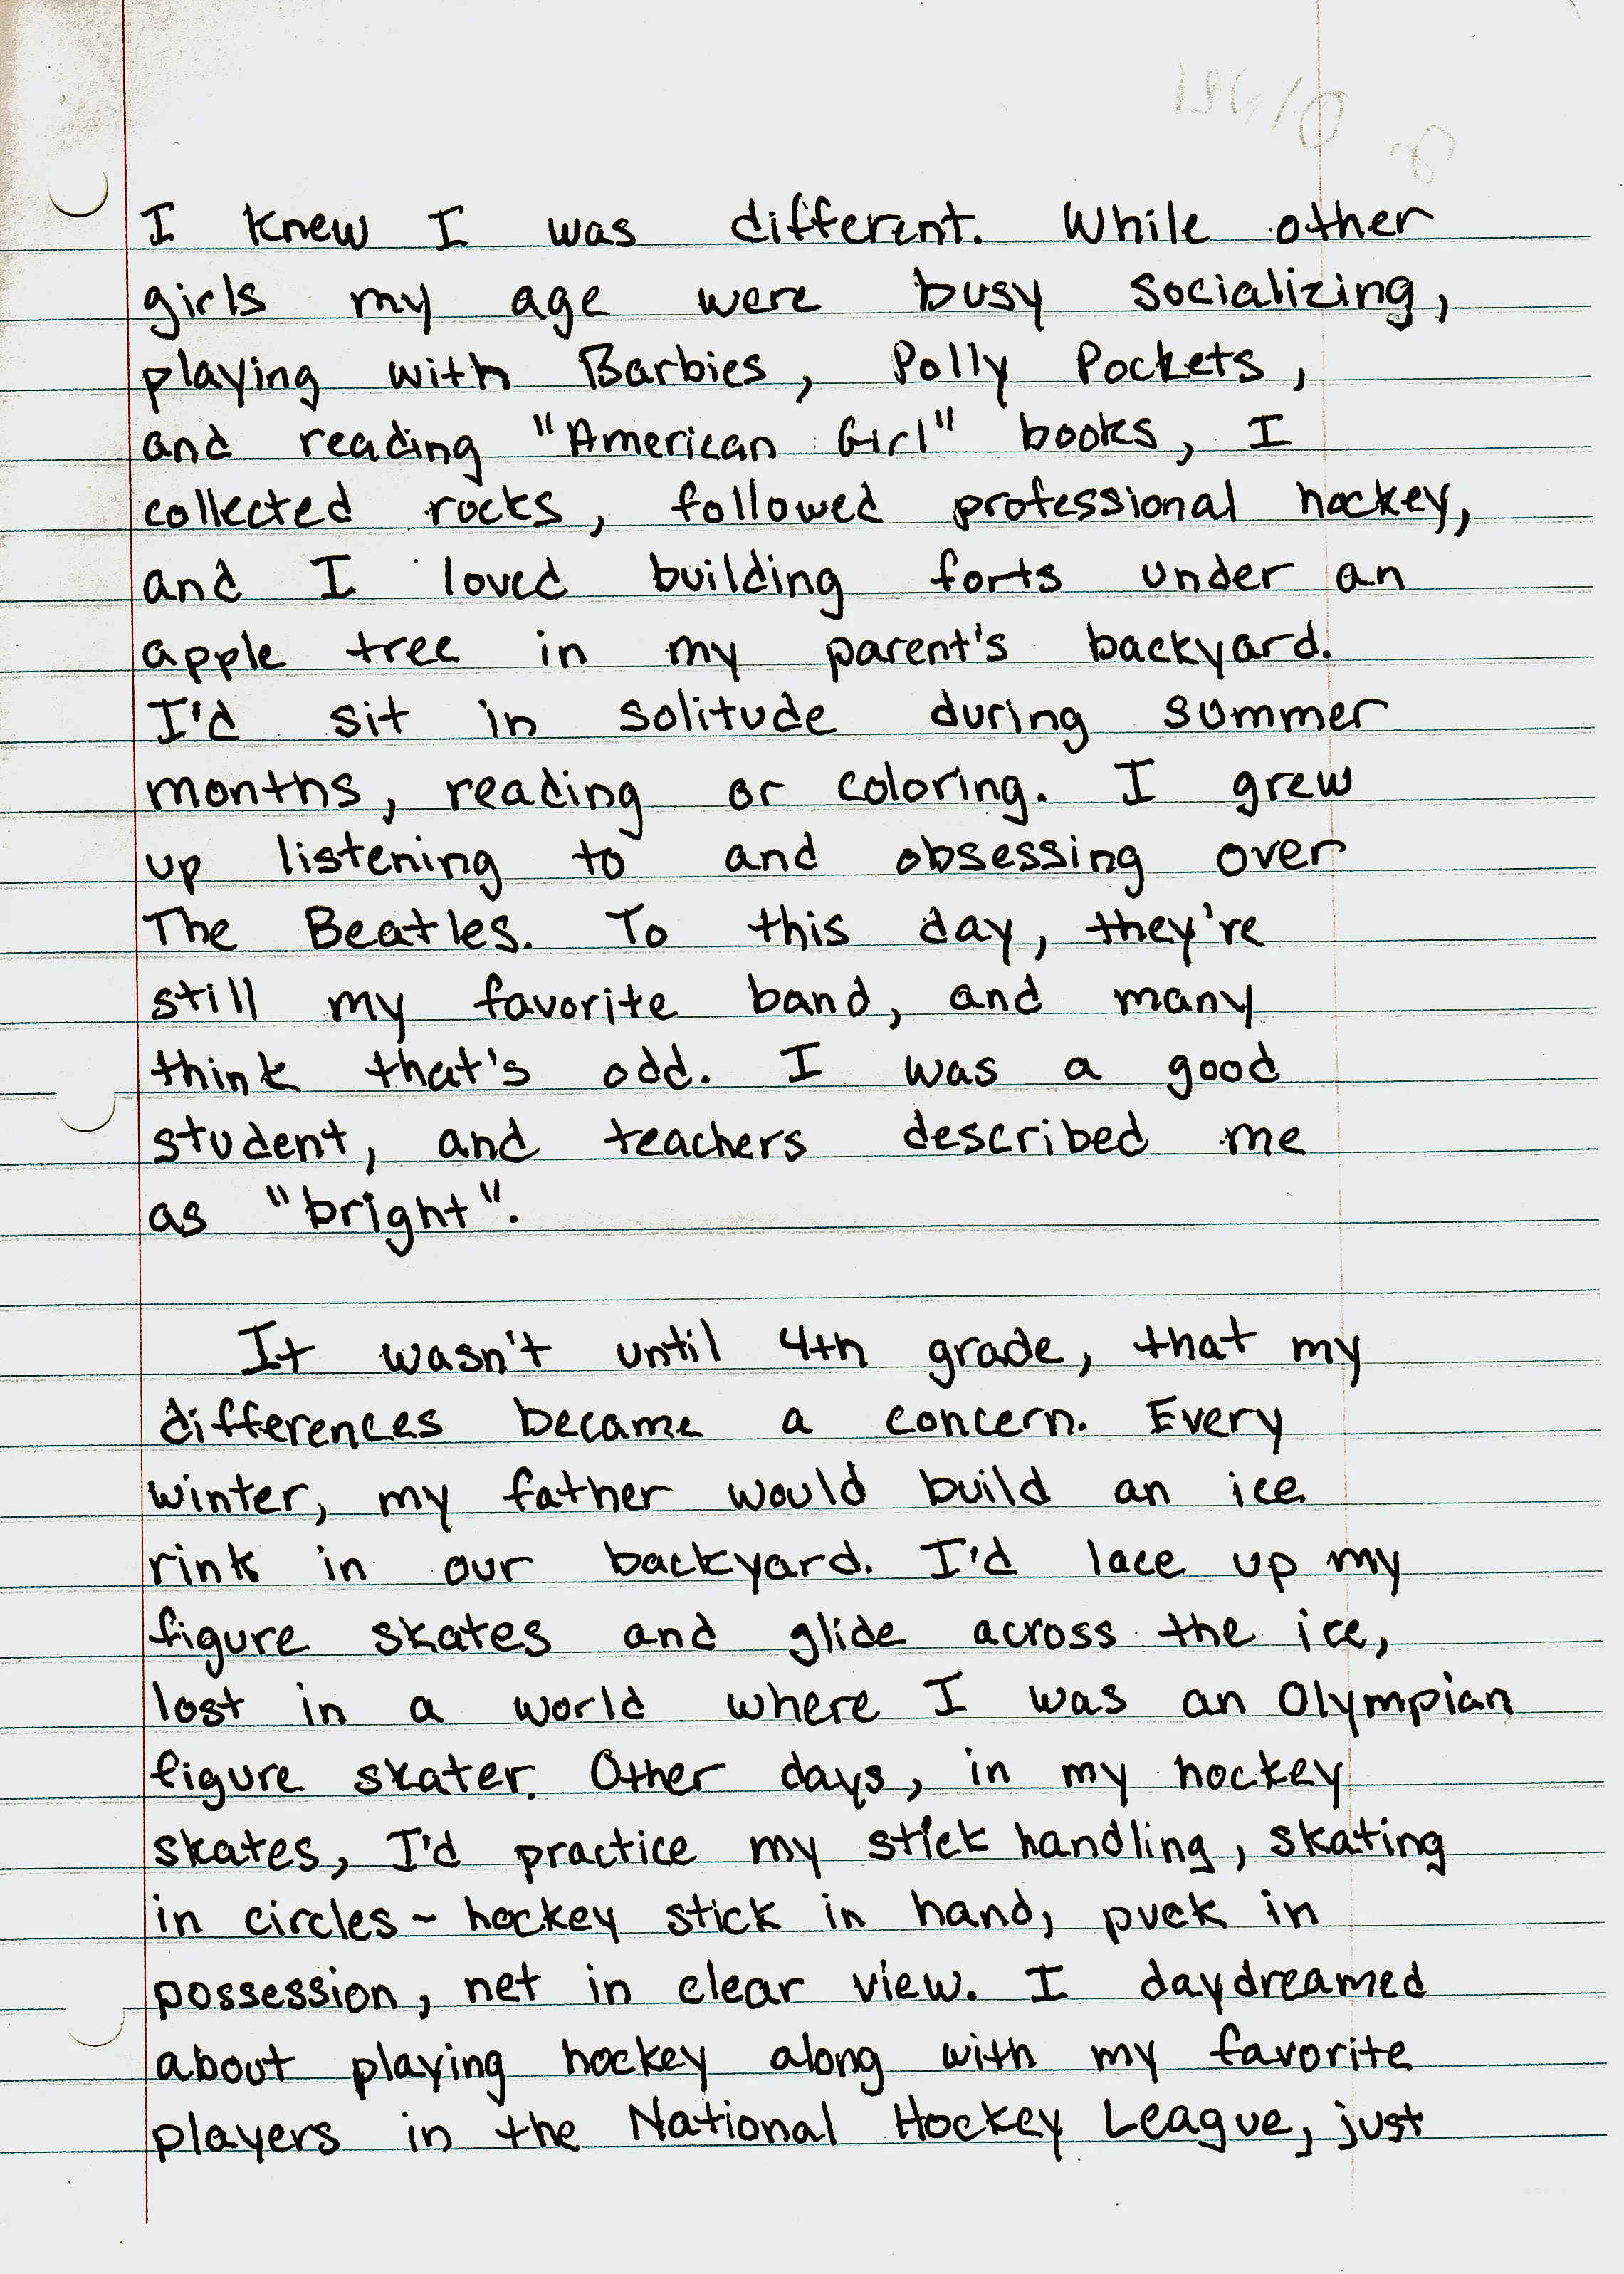 I knew I was different. While other
girls my age were busy socializing,
playing with Barbies, Polly Pockets,
and reading "American Girl" books, I
collected rocks, followed professional hockey,
and I loved building forts under an
apple tree in my parent's backyard.
I'd sit in solitude during summer
months, reading or coloring. I grew
up listening to and obsessing over
The Beatles. To this day, they're
still my favorite band, and many
think that's odd. I was a good
student, and teachers described me
as "bright".
It wasn't until 4th grade, that my
differences became a concern. Every
winter, my father would build an ice
rink in our backyard. I'd lace up my
figure skates and glide across the ice,
lost in a world where I was an Olympian
figure skater. Other days, in my hockey
skates, I'd practice my stick handling, skating
in circles ~ hockey stick in hand, puck in
possession, net in clear view. I daydreamed
about playing hockey along with my favorite
players in the National Hockey League, just